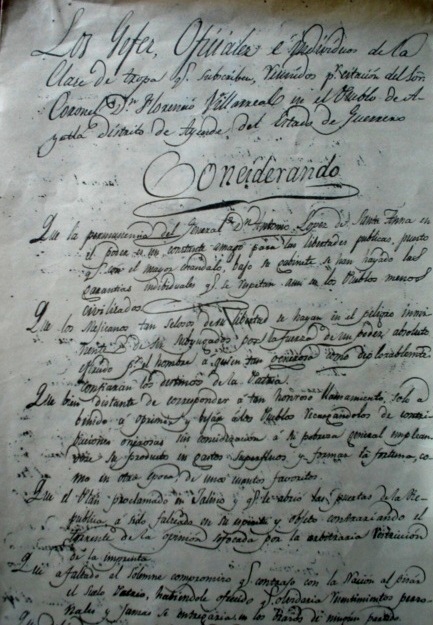 Los Gefes, Oficiales é Yndividuos de la
Clase de tropa q. subscriben, reunidos p. citación del Sor.
Coronel D. Florencio Villarreal en el Pueblo de A-
yutla distrito de Ayende, del Estado de Guerrero
Considerando
Que la permanencia del General D. Antonio Lopez de Santa Anna en
el poder es un constante amago para las libertades publicas, puesto
q. con el mayor escandalo, bajo su gobierno se han hayado las
garantias individuales q. se respetan aun en los Pueblos menos
civilizados
Que los Mejicanos tan selosos de su libertad se hayan en el peligro
de ser subyugados por la fuerza de un poder absoluto
por el hombre a quien tan como deplorablemente
confiaran los destinos de la Patria.
Que bien distante de corresponder á tan honroso llamamiento, solo a
benido á oprimir y bejar á los Pueblos recargandolos de contri-
buciones onerosas sin consideración á la pobreza general emplean-
dose su producto en gastos superfluos y formar la fortuna, co-
mo en otra época de unos cuantos favoritos.
Que el Plan proclamado en Jalisco q. le abrió las puertas de la Re-
publica a sido falseado en su espiritu y objeto contrariando el
torrente de la opinion sofocada por la arbitraria restriccion
de la imprenta.
Que a faltado el solemne compromiso q. contrajo con la Nación al pisar
el suelo Patrio, habiendole ofrecido q. olvidaria resentimientos perso-
nales y jamas se entregaria en los brazos de ningun partido.